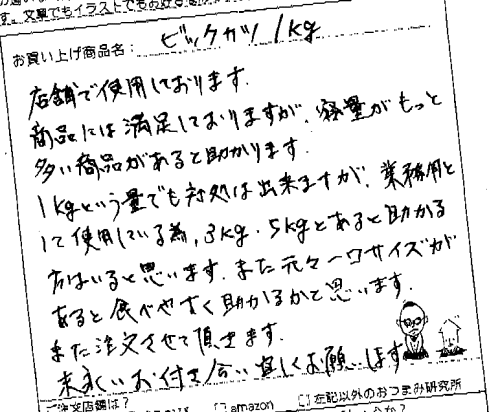 す。文章でもイラストでもお好き
お買い上げ商品名： ビックカツ 1kg
店舗で使用しております。
商品には満足しておりますが、容量がもっと
多い商品があると助かります。
1kgという量でも対処は出来ますが、業務用と
して使用している為、3kg、5kgとあると助かる
方はいると思います。また元々一口サイズが
あると食べやすく助かるかと思います。
また注文させて頂きます。
末永いお付き合い宜しくお願いします
ご注文店舗は？
[] amazon [] 左記以外のおつまみ研究所